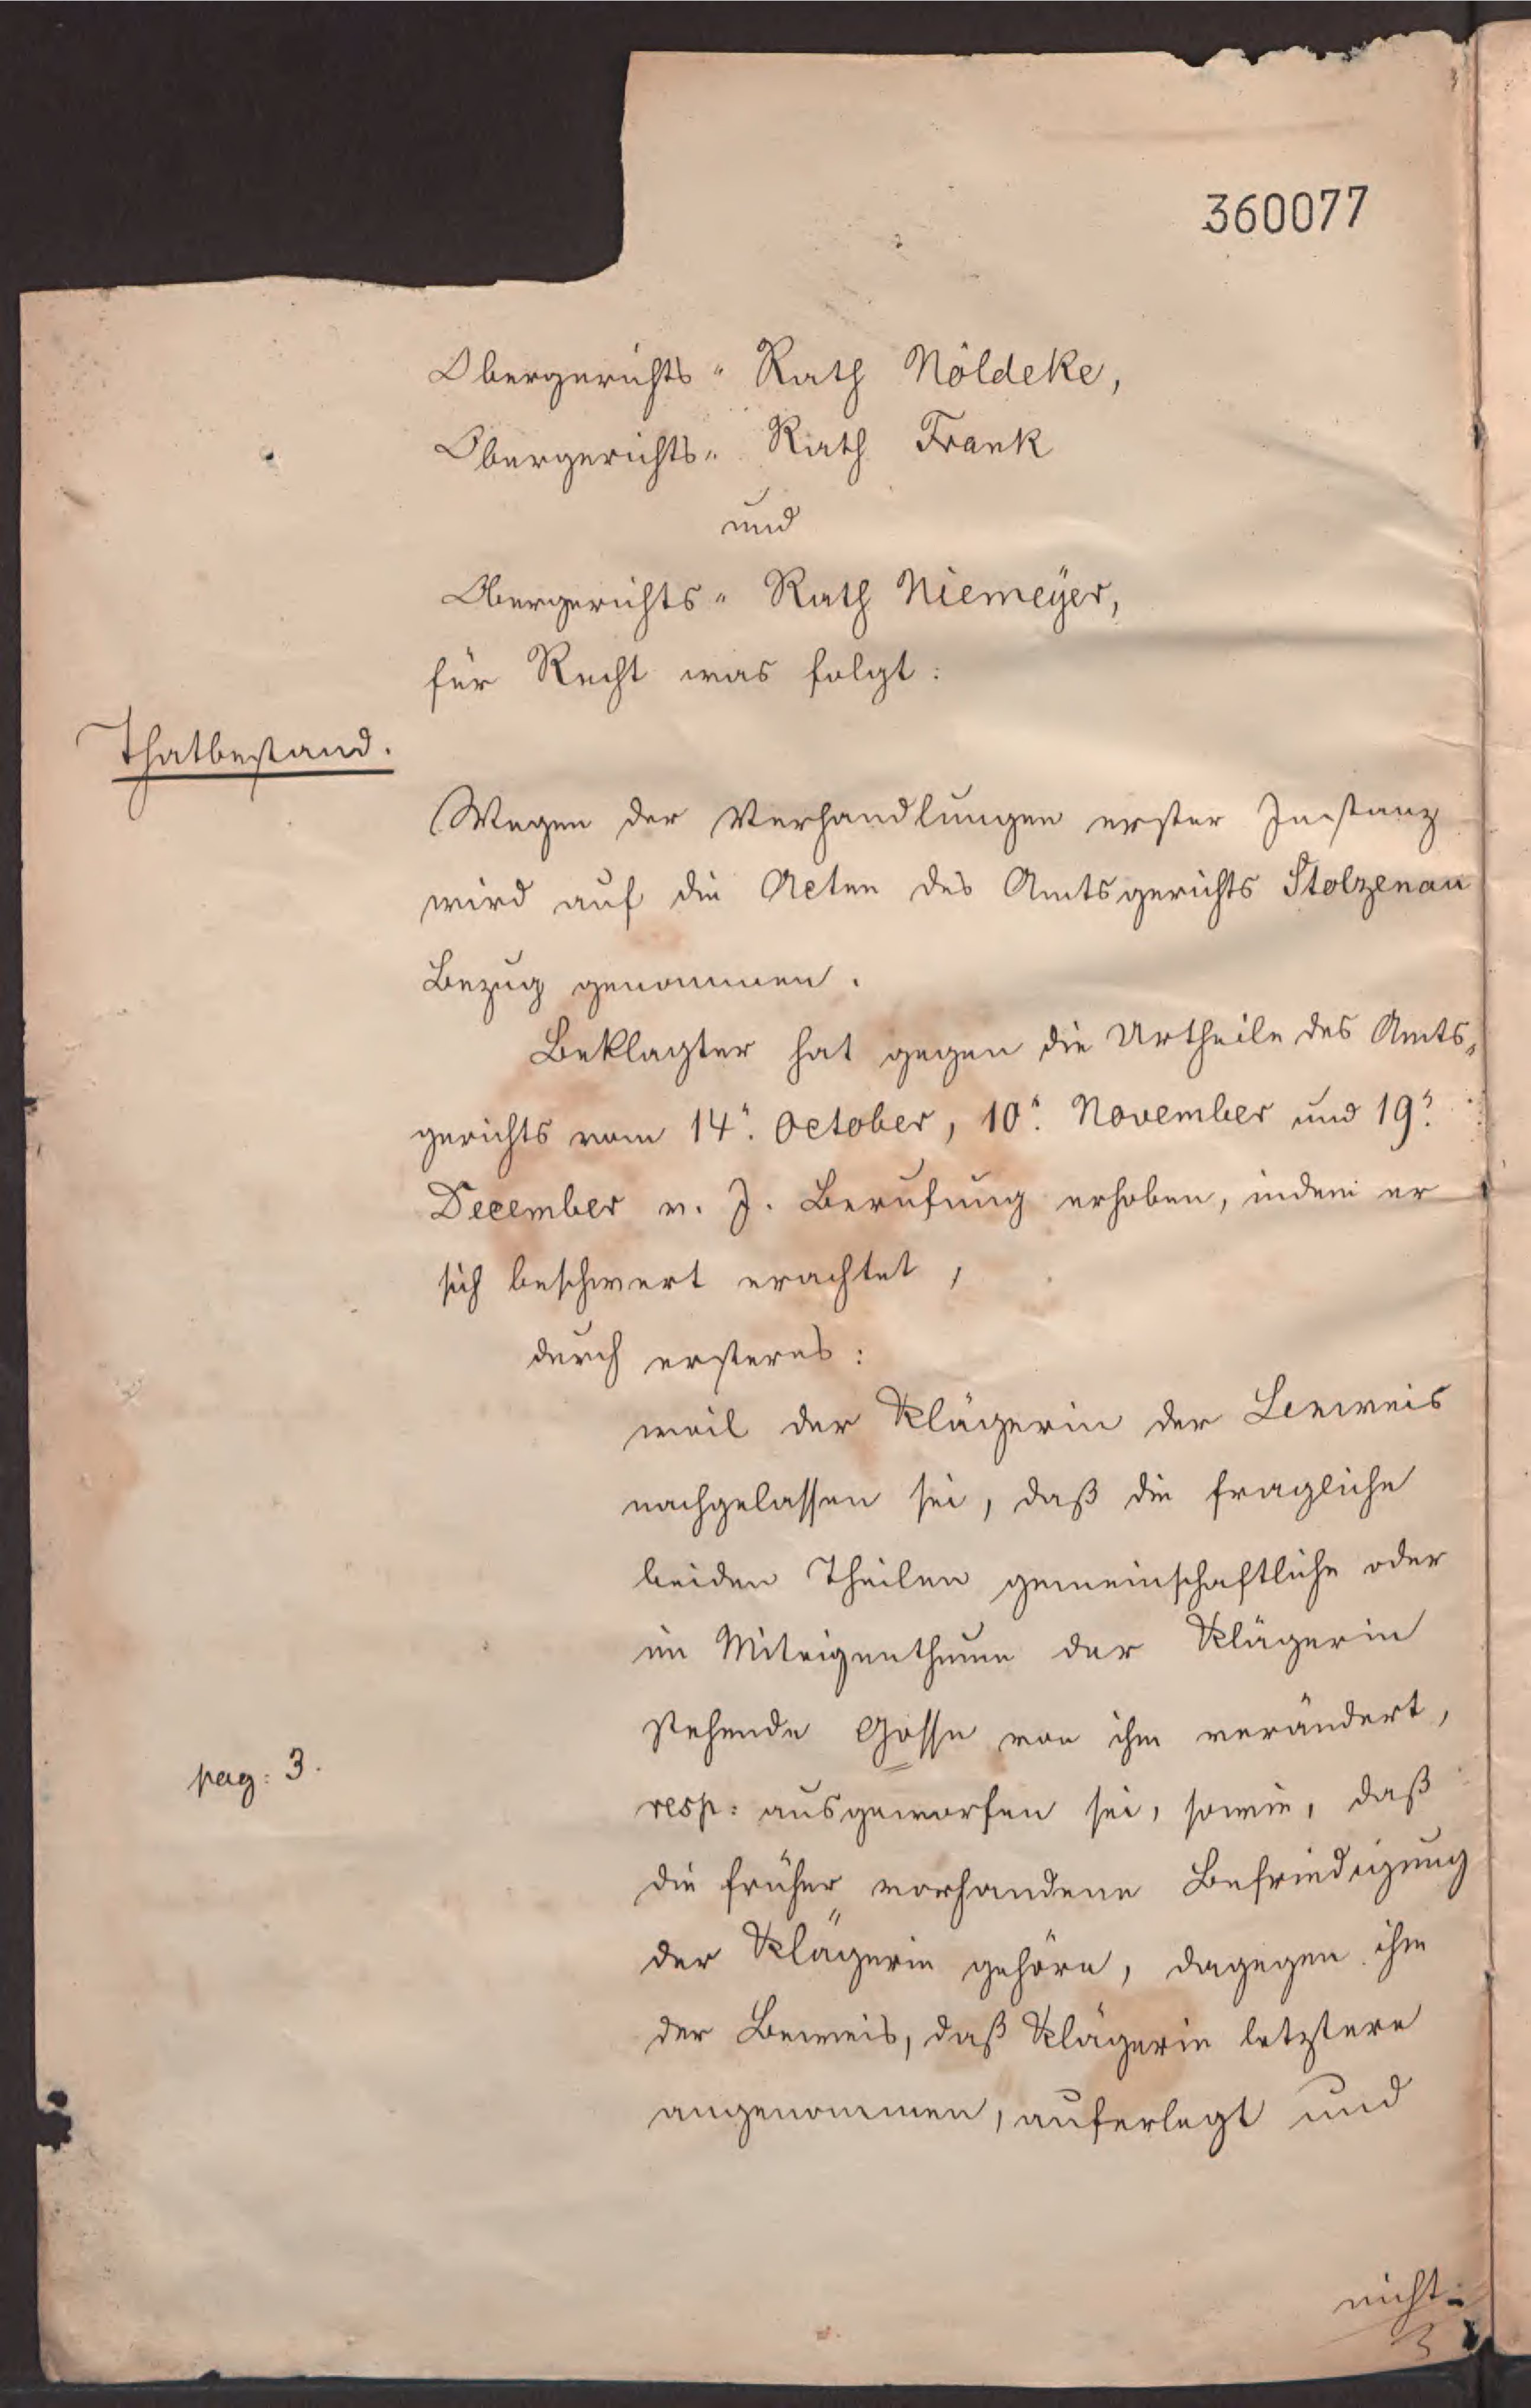 360077
Obergerichts- Rath Nöldeke,
Obergerichts- Rath Frank
und
Obergerichts- Rath Niemeyer,
für Recht was folgt:
Thatbestand.
Wegen der Verhandlungen erster Instanz
wird auf die Acten des Amtsgerichts Stolzenau
Bezug genommen.
Beklagter hat gegen die Urtheile des Amts-
gerichts vom 14n. October, 10n. November und 19n.
December v. J. Berufung erhoben, indem er
sich beschwert erachtet,
durch ersteres:
weil der Klägerin der Beweis
nachgelassen sei, daß die fragliche
beiden Theilen gemeinschaftliche oder
im Miteigenthume der Klägerin
stehende Gosse von ihm verändert,
pag: 3.
resp: ausgeworfen sei, sowie, daß
die früher vorhandene Befriedigung
der Klägerin gehöre, dagegen ihm
der Beweis, daß Klägerin letztere
angenommen, auferlegt und
nicht
3